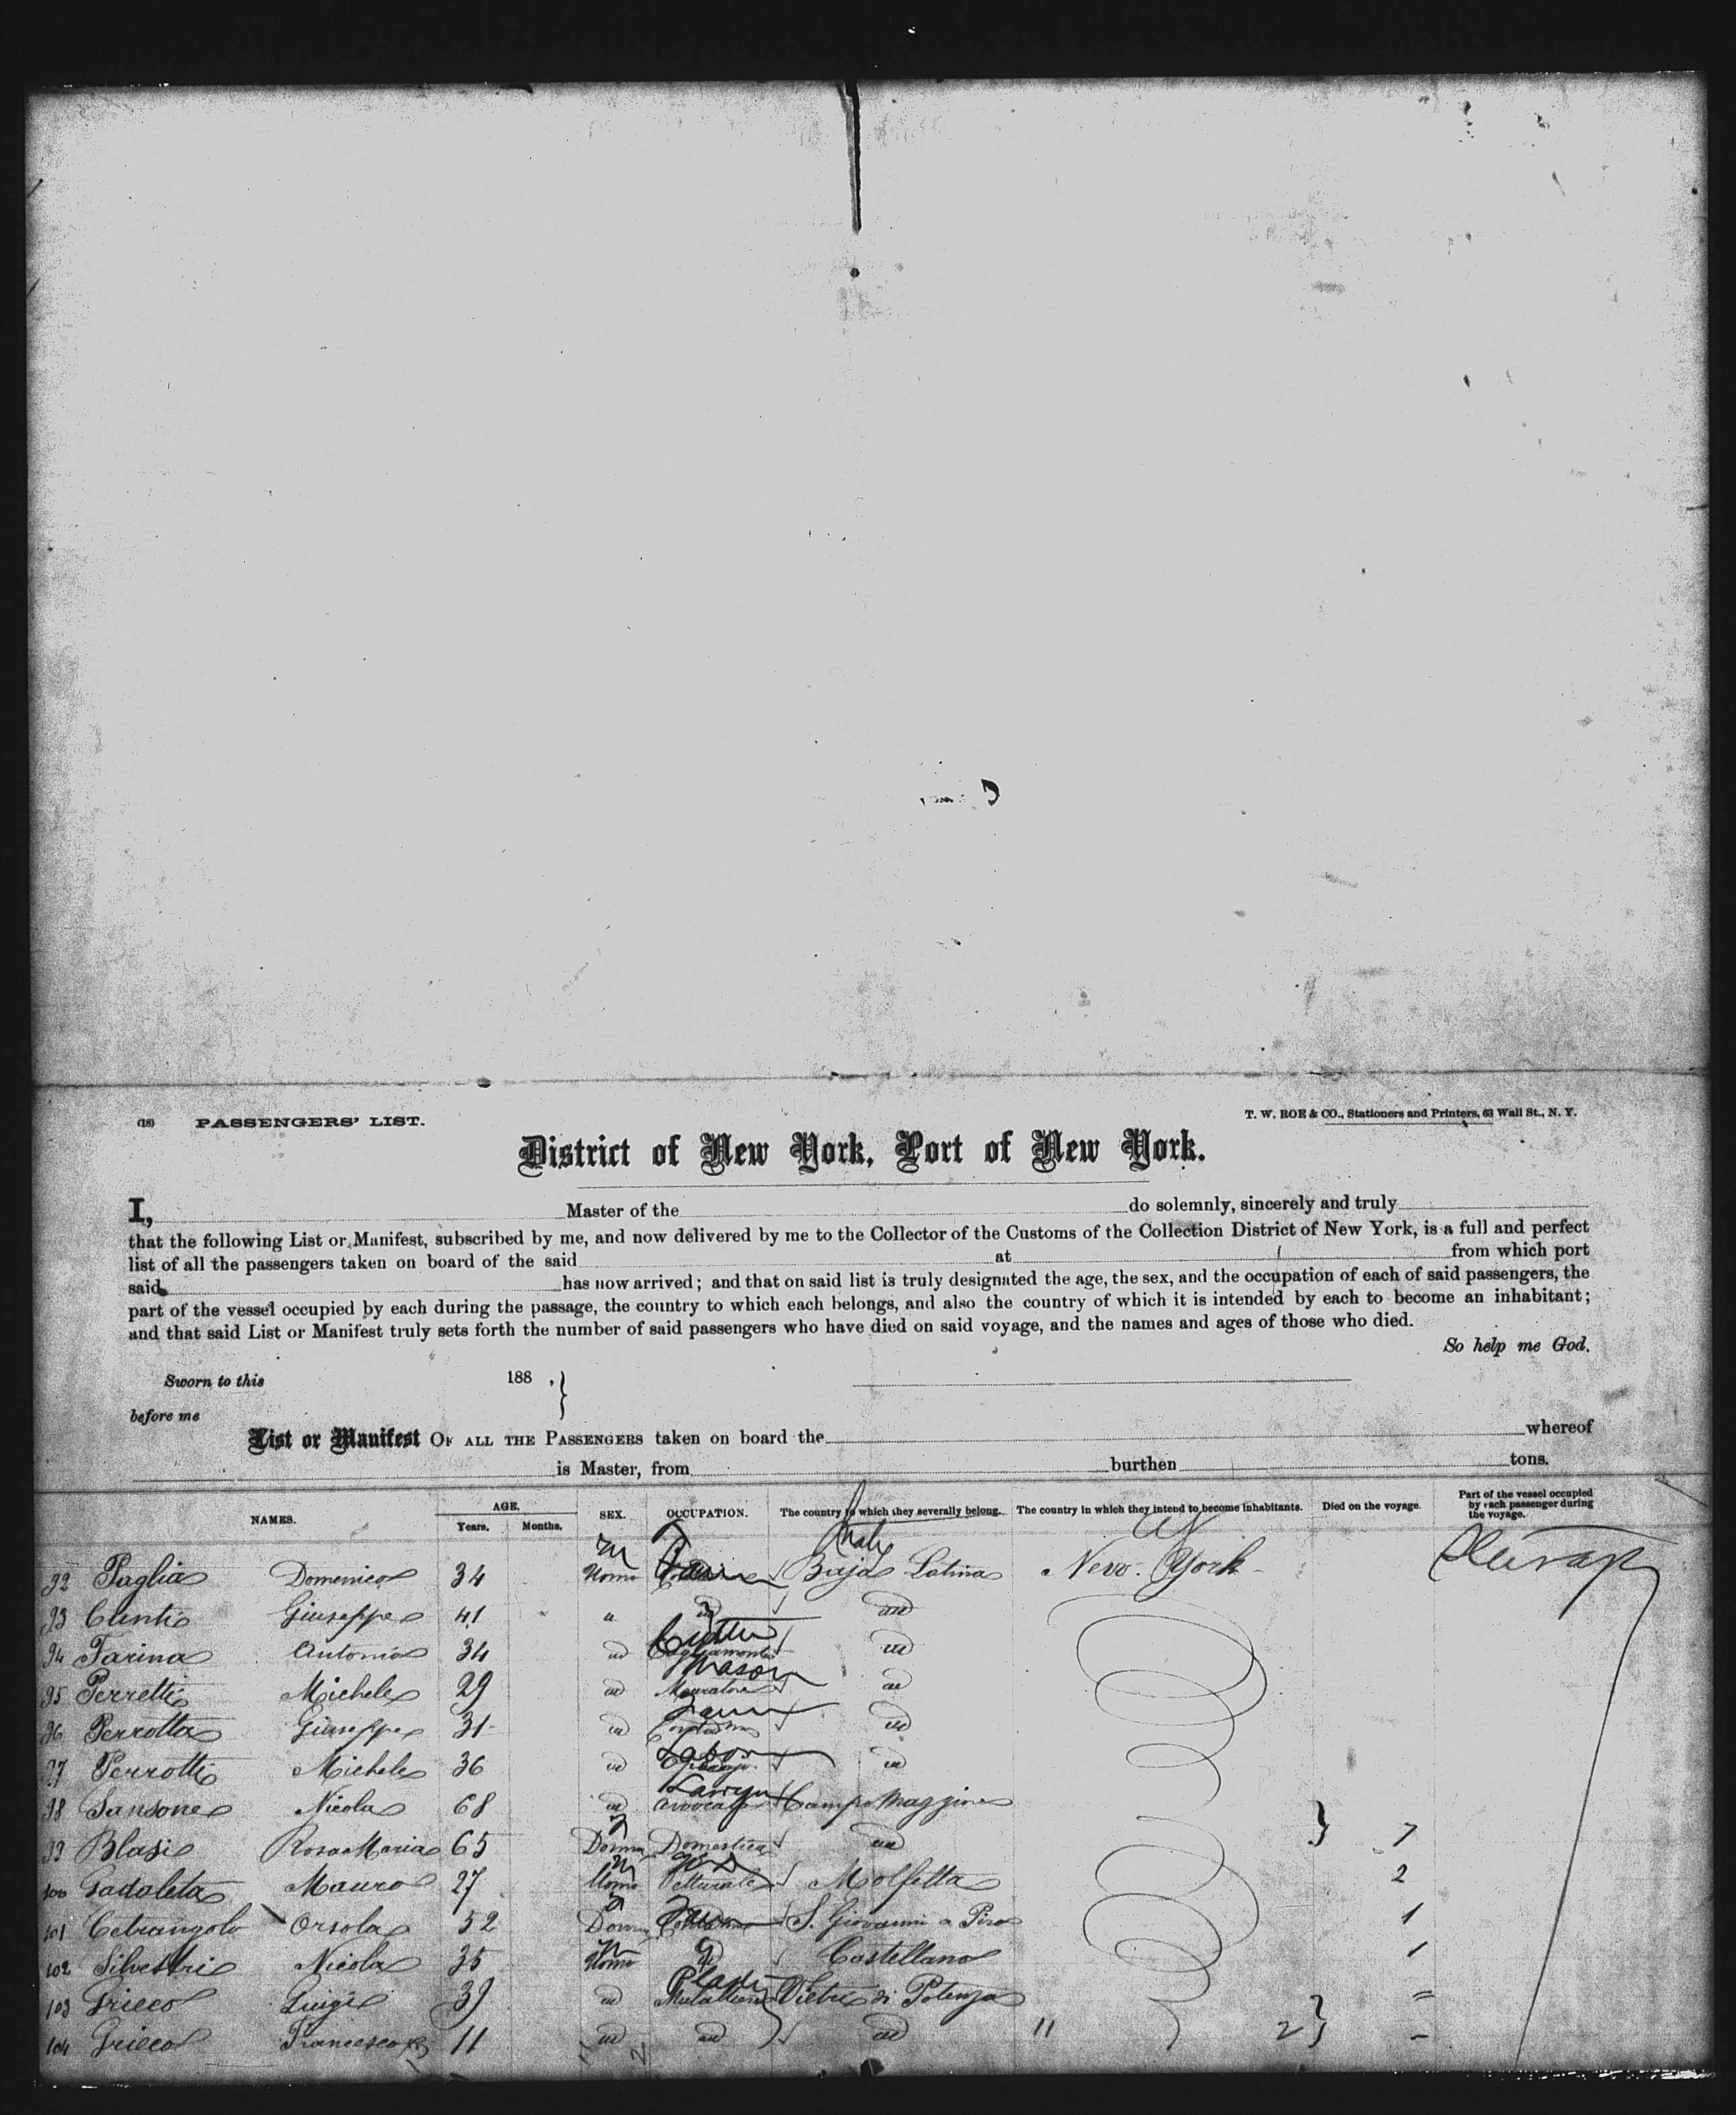 (18) PASSENGERS' LIST.
T. W. ROE & CO., Stationers and Printers, 63 Wall St., N. Y.
District of New York, Port of New York.
I, Master of the do solemnly, sincerely and truly
that the following List or Manifest, subscribed by me, and now delivered by me to the Collector of the Customs of the Collection District of New York, is a full and perfect
list of all the passengers taken on board of the said at from which port
said has now arrived; and that on said list is truly designated the age, the sex, and the occupation of each of said passengers, the
part of the vessel occupied by each during the passage, the country to which each belongs, and also the country of which it is intended by each to become an inhabitant;
and that said List or Manifest truly sets forth the number of said passengers who have died on said voyage, and the names and ages of those who died.
So help me God.
Sworn to this 188 , }
before me
List or Manifest OF ALL THE PASSENGERS taken on board the whereof
is Master, from burthen tons.
NAMES. AGE. Years. Months. SEX. OCCUPATION. The country to which they severally belong. The country in which they intend to become inhabitants. Died on the voyage. Part of the vessel occupied by each passenger during the voyage.
m Italy
92 Paglia Domenico 34 Uomo Baja Latina New York
93 Giuseppe 41 " id id
94 Farina Antonio 34 id Cutter id
95 Perretti Michele 29 id Mason Muratore id
96 Perrotta Giuseppe 31 id Contadino id
97 Perrotti Michele 36 id Labor id
98 Sansone Nicola 68 id Lawyer Avvocato Campomaggiore
99 Blasi Rosa Maria 65 Donna Domestica id 7
100 Gadaleta Mauro 27 m Uomo Molfetta 2
101 Cetrangolo Orsola 52 Donna S. Giovanni a Piro 1
102 Silvestri Nicola 35 m Uomo id Castellano 1
103 Grieco Luigi 39 id Mulattiere Vietri di Potenza =
104 Grieco Francesco 11 id id id 11 2 –